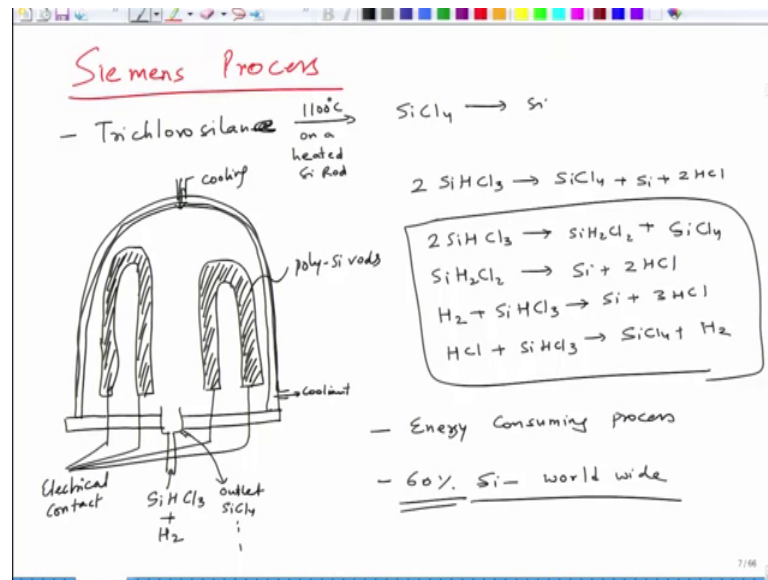 Siemens Process
- Trichlorosilane 1100°C on a heated Si Rod → SiCl4 → Si
2 SiHCl3 → SiCl4 + Si + 2HCl
2 SiHCl3 → SiH2Cl2 + SiCl4
SiH2Cl2 → Si + 2HCl
H2 + SiHCl3 → Si + 3HCl
HCl + SiHCl3 → SiCl4 + H2
- Energy Consuming process
- 60% Si - world wide
cooling
poly-Si rods
coolant
Electrical
Contact
SiHCl3
+
H2
outlet
SiCl4
7/66